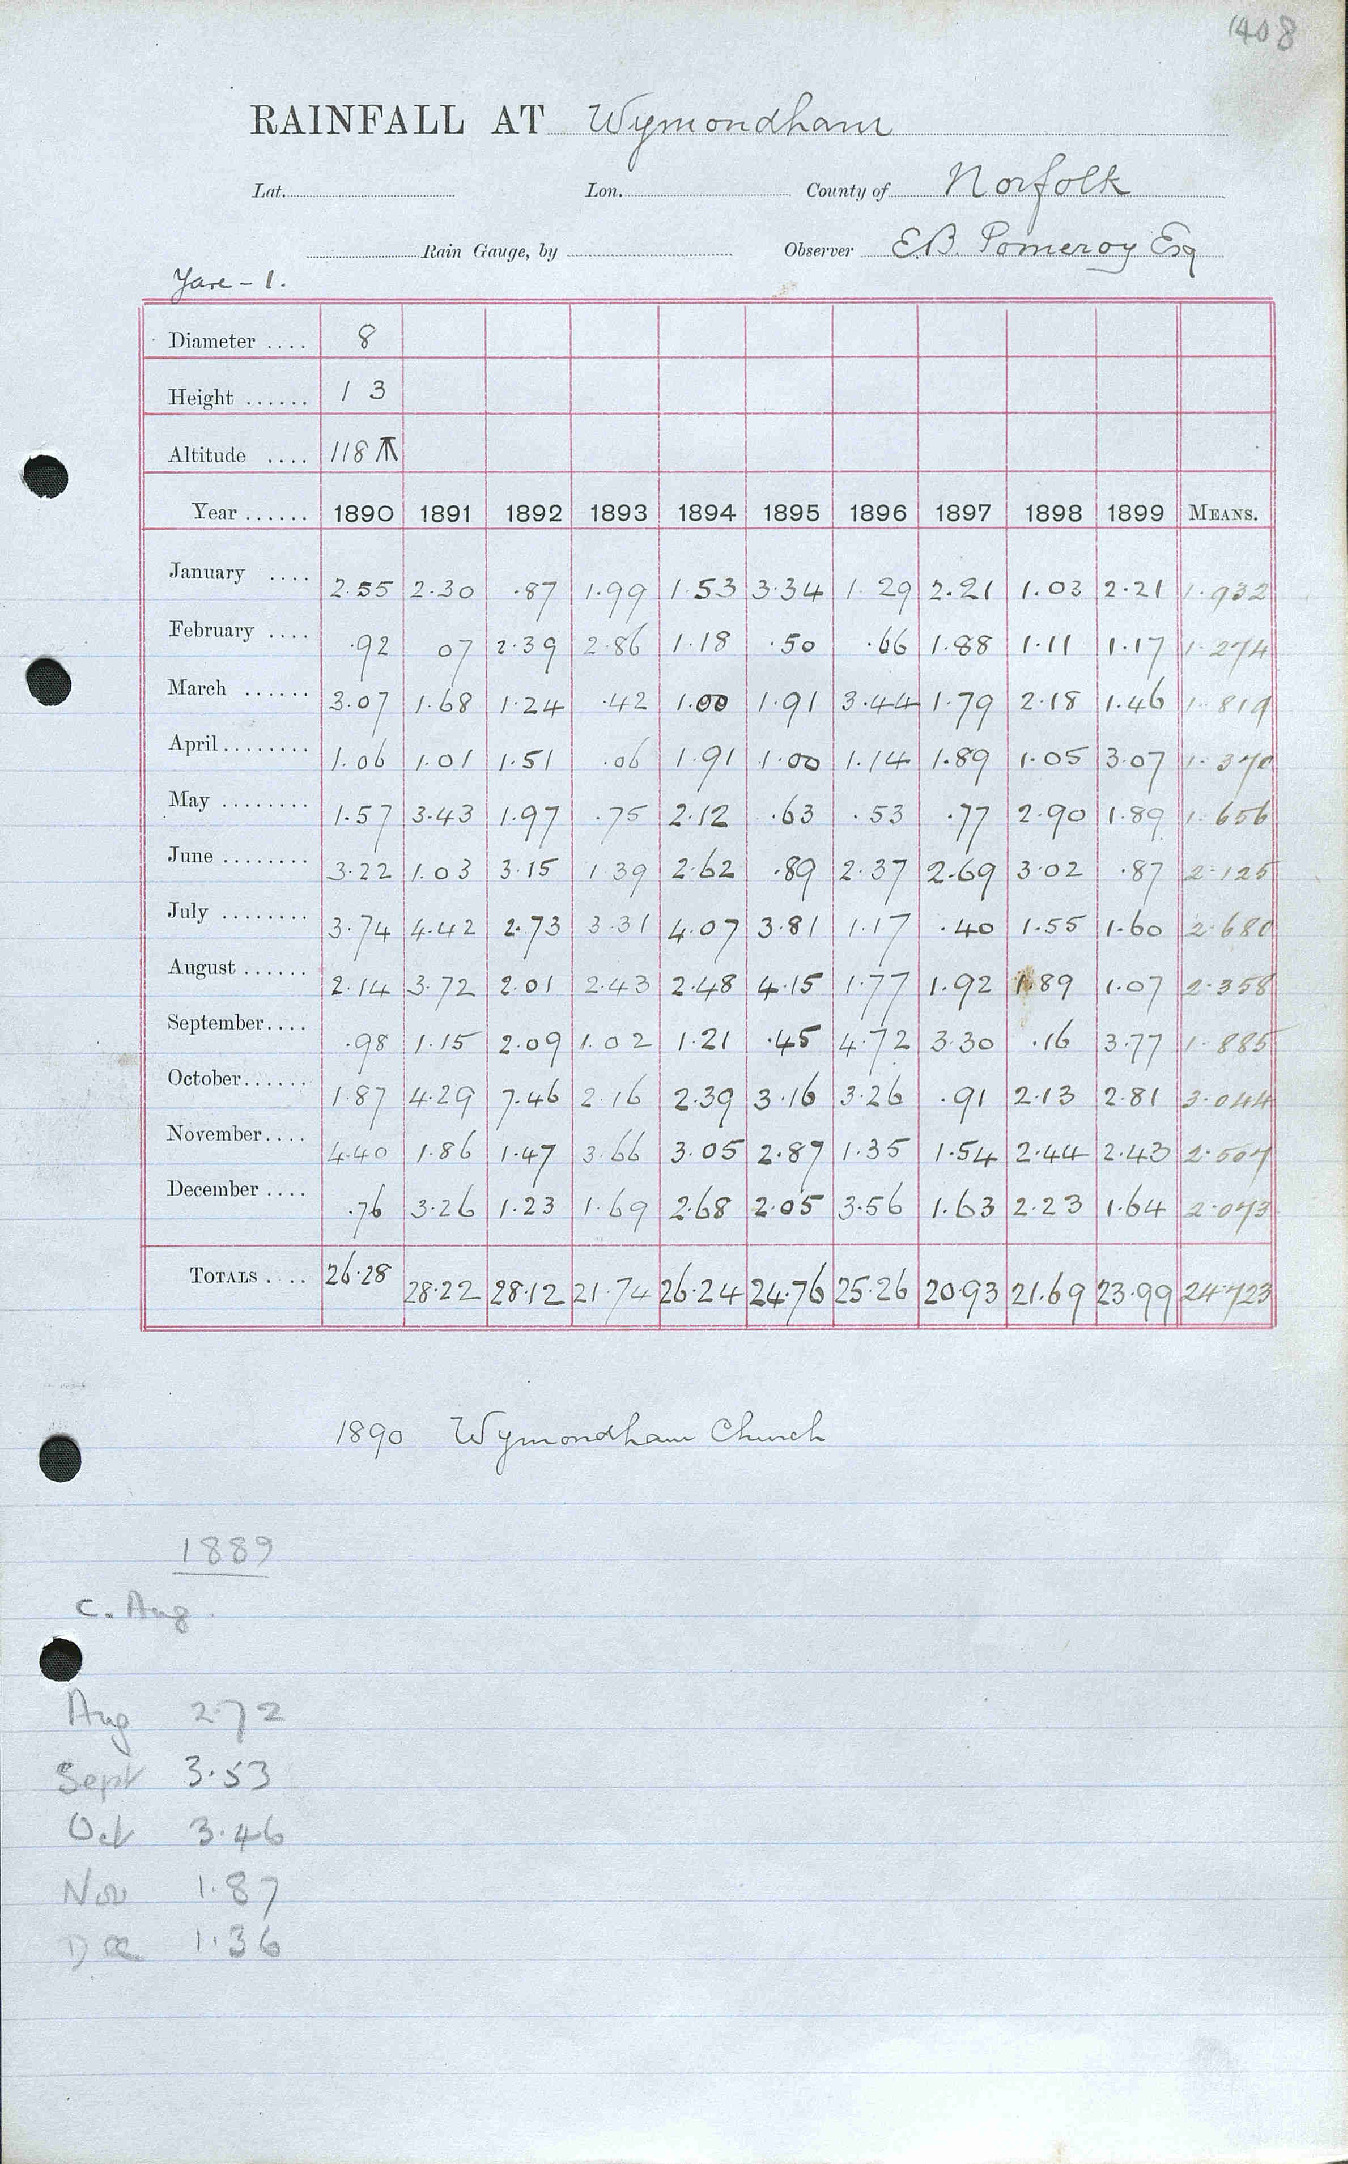 1408
RAINFALL AT Wymondham
Lat. Lon. County of Norfolk
Rain Gauge, by Observer E.B. Pomeroy Esq
Yare - 1.
Diameter .... 8
Height ...... 1 3
Altitude .... 118
Year ...... 1890 1891 1892 1893 1894 1895 1896 1897 1898 1899 MEANS.
January .... 2.55 2.30 .87 1.99 1.53 3.34 1.29 2.21 1.03 2.21 1.932
February .... .92 07 2.39 2.86 1.18 .50 .66 1.88 1.11 1.17 1.274
March ...... 3.07 1.68 1.24 .42 1.00 1.91 3.44 1.79 2.18 1.46 1.819
April ........ 1.06 1.01 1.51 .06 1.91 1.00 1.14 1.89 1.05 3.07 1.370
May ........ 1.57 3.43 1.97 .75 2.12 .63 .53 .77 2.90 1.89 1.656
June ........ 3.22 1.03 3.15 1 39 2.62 .89 2.37 2.69 3.02 .87 2.125
July ........ 3.74 4.42 2.73 3.31 4.07 3.81 1.17 .40 1.55 1.60 2.680
August ...... 2.14 3.72 2.01 2.43 2.48 4.15 1.77 1.92 1.89 1.07 2.358
September.... .98 1.15 2.09 1.02 1.21 .45 4.72 3.30 .16 3.77 1.885
October...... 1.87 4.29 7.46 2.16 2.39 3.16 3.26 .91 2.13 2.81 3.044
November.... 4.40 1.86 1.47 3.66 3.05 2.87 1.35 1.54 2.44 2.43 2.507
December .... .76 3.26 1.23 1.69 2.68 2.05 3.56 1.63 2.23 1.64 2.073
TOTALS .... 26.28 28.22 28.12 21.74 26.24 24.76 25.26 20.93 21.69 23.99 24.723
1890 Wymondham Church
1889
C. Aug.
Aug 2.72
Sept 3.53
Oct 3.46
Nov 1.87
Dec 1.36